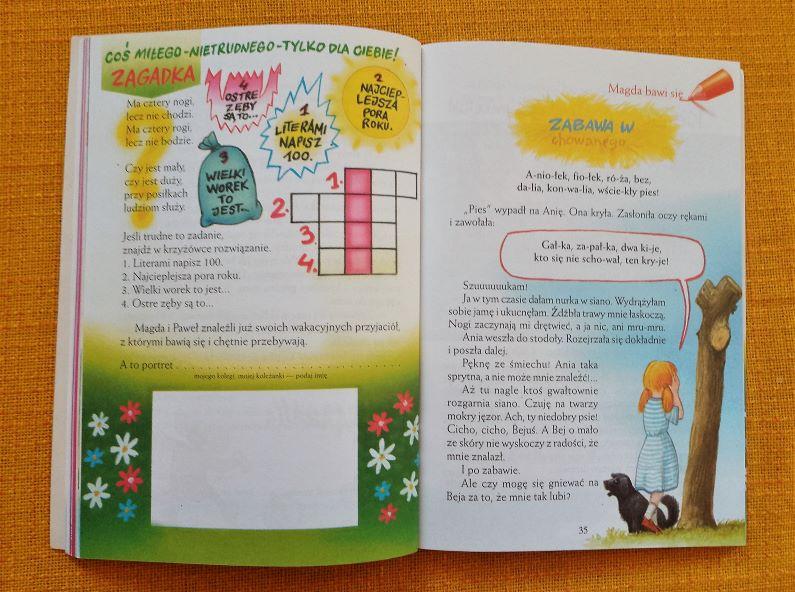 COŚ MIŁEGO-NIETRUDNEGO-TYLKO DLA CIEBIE!
ZAGADKA
Ma cztery nogi,
lecz nie chodzi.
Ma cztery rogi,
lecz nie bodzie.
Czy jest mały,
czy jest duży,
przy posiłkach
ludziom służy.
4
OSTRE
ZĘBY
SĄ TO...
1
LITERAMI
NAPISZ
100.
2
NAJCIEP-
LEJSZA
PORA
ROKU.
3
WIELKI
WOREK
TO
JEST...
1.
2.
3.
4.
Jeśli trudne to zadanie,
znajdź w krzyżówce rozwiązanie.
1. Literami napisz 100.
2. Najcieplejsza pora roku.
3. Wielki worek to jest...
4. Ostre zęby są to...
Magda i Paweł znaleźli już swoich wakacyjnych przyjaciół,
z którymi bawią się i chętnie przebywają.
A to portret
mojego kolegi, mojej koleżanki — podaj imię
Magda bawi się
ZABAWA W
chowanego
A-nio-łek, fio-łek, ró-ża, bez,
da-lia, kon-wa-lia, wście-kły pies!
„Pies” wypadł na Anię. Ona kryła. Zasłoniła oczy rękami
i zawołała:
Gał-ka, za-pał-ka, dwa ki-je,
kto się nie scho-wał, ten kry-je!
Szuuuuuukam!
Ja w tym czasie dałam nurka w siano. Wydrążyłam
sobie jamę i ukucnęłam. Źdźbła trawy mnie łaskoczą.
Nogi zaczynają mi drętwieć, a ja nic, ani mru-mru.
Ania weszła do stodoły. Rozejrzała się dokładnie
i poszła dalej.
Pęknę ze śmiechu! Ania taka
sprytna, a nie może mnie znaleźć!...
Aż tu nagle ktoś gwałtownie
rozgarnia siano. Czuję na twarzy
mokry jęzor. Ach, ty niedobry psie!
Cicho, cicho, Bejuś. A Bej o mało
ze skóry nie wyskoczy z radości, że
mnie znalazł.
I po zabawie.
Ale czy mogę się gniewać na
Beja za to, że mnie tak lubi?
35